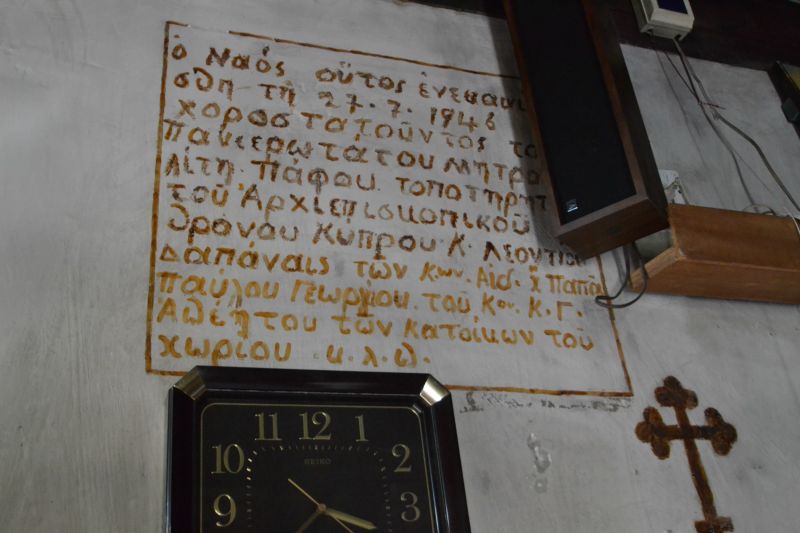 ὁ Ναός οὗτος ἐνεκαινι
σθη τῇ 27.7.1946
χοροστατοῦντος το
πανιερωτάτου Μητρο
λίτη Πάφου τοποτηρητ
τοῦ Ἀρχιεπισκοπικοῦ
θρόνου Κύπρου Κ. Λεοντίου
δαπάναις τῶν κων. Αἰδ. Παπα
παύλου Γεωργίου τοῦ Κου. Κ. Γ.
τῶν κατοίκων τοῦ
χωρίου κ.λ.ω.
11 12 1
10 SEIKO 2
9 3